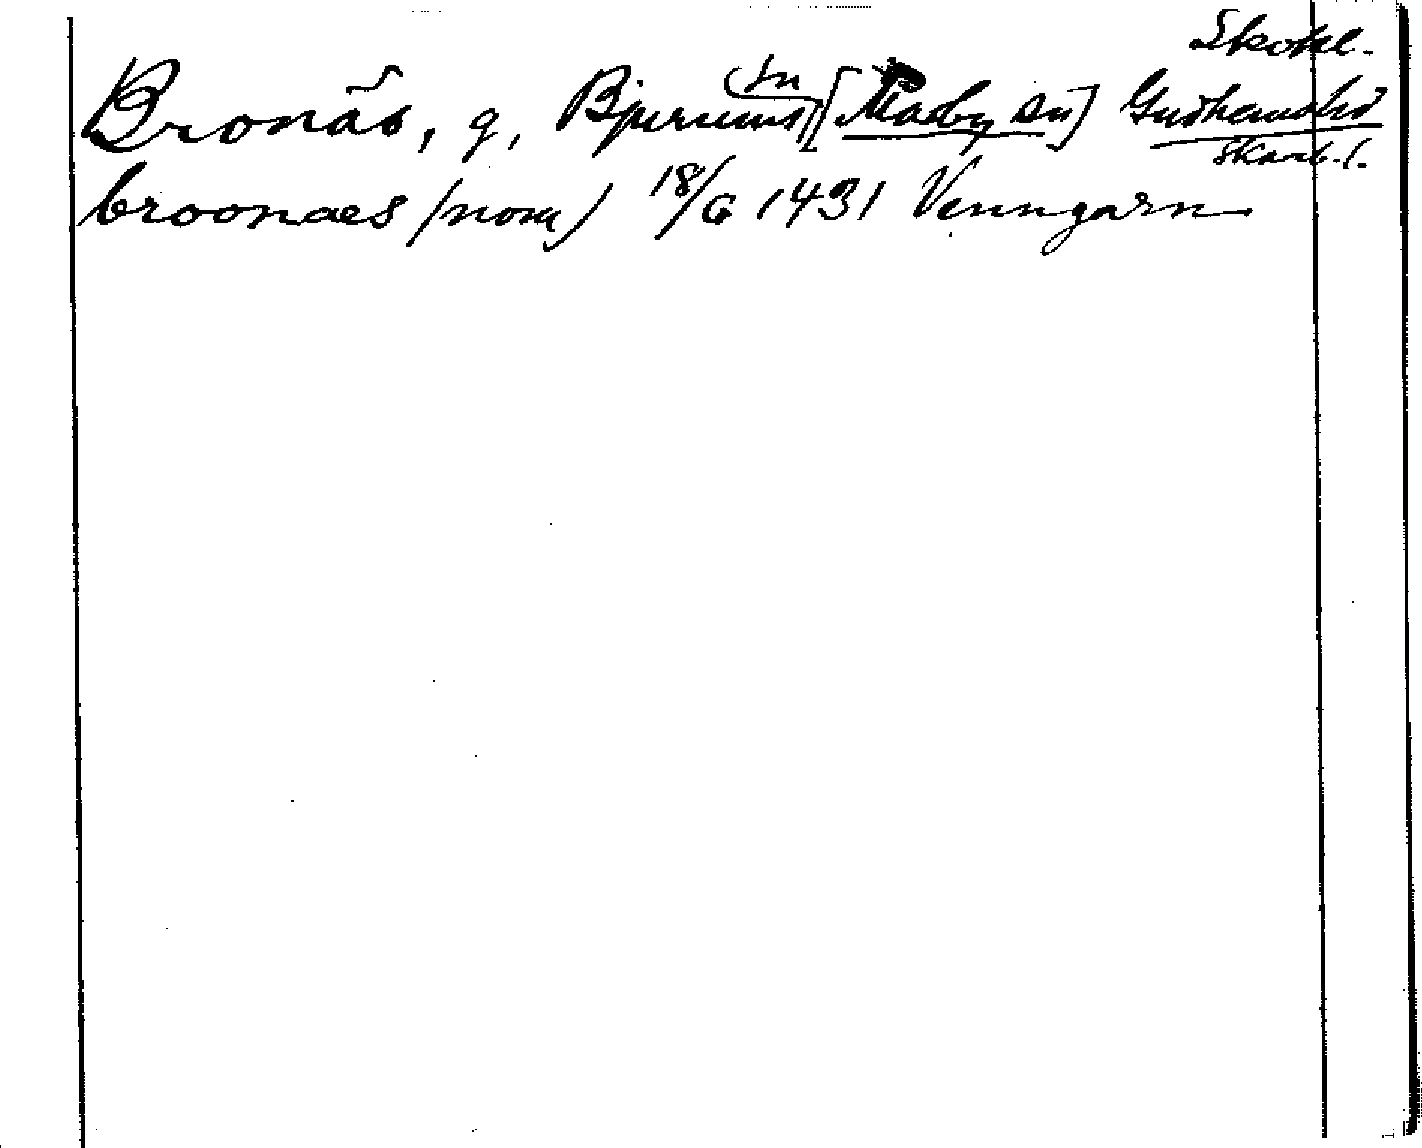 Skokl.
Bronäs, g, Bjurums (sn) [Marby sn] Gudhems hd
Skarb. l.
broonaes (nom) 18/6 1431 Venngarn